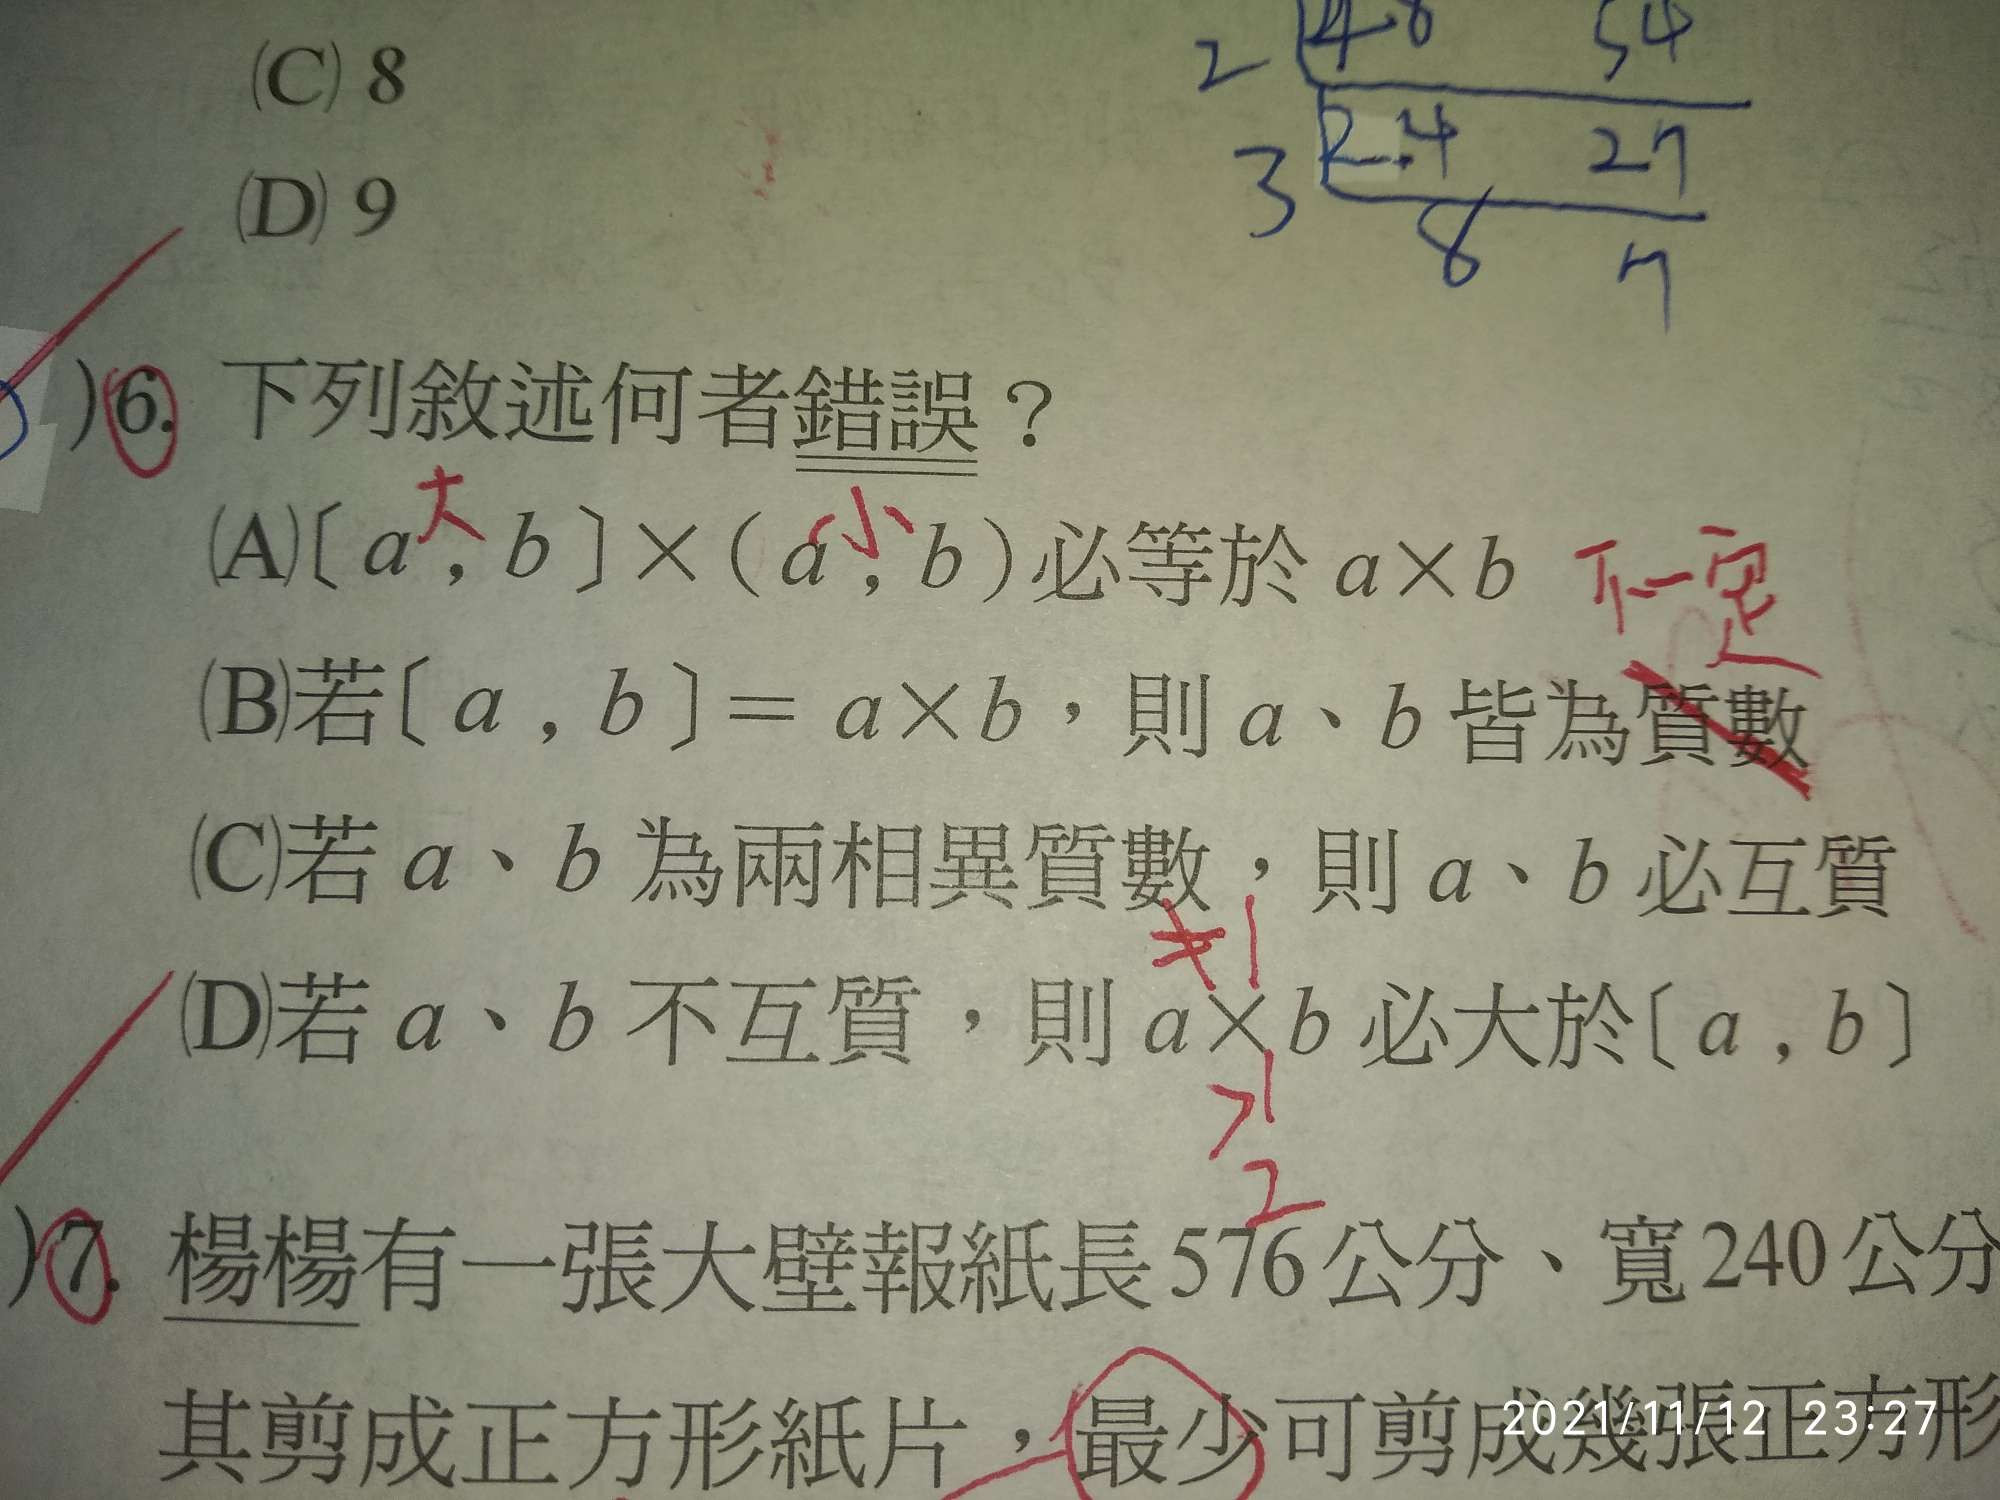 (C) 8
2 48 54
3 24 27
(D) 9
8 7
)6. 下列敘述何者錯誤？
大 小
(A)〔a , b〕×(a , b)必等於 a×b 不一定
(B)若〔a , b〕= a×b，則 a、b 皆為質數
(C)若 a、b 為兩相異質數，則 a、b 必互質
≠1
(D)若 a、b 不互質，則 a×b 必大於〔a , b〕
>1
2
)7. 楊楊有一張大壁報紙長576公分、寬240公分
其剪成正方形紙片，最少可剪成幾張正方形
2021/11/12 23:27